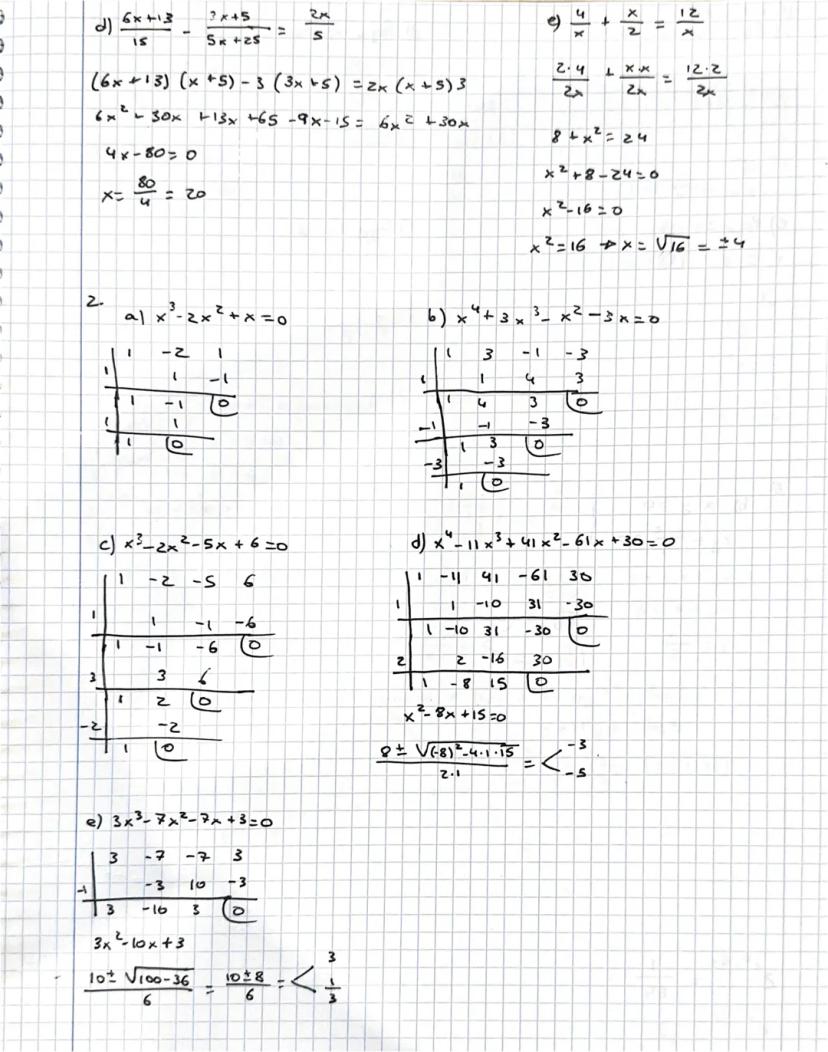 d) (6x+13)/15 - (3x+5)/(5x+25) = 2x/5
(6x+13) (x+5) - 3 (3x+5) = 2x (x+5) 3
6x² + 30x + 13x + 65 - 9x - 15 = 6x² + 30x
4x - 80 = 0
x = 80/4 = 20
e) 4/x + x/2 = 12/x
2·4/2x + x·x/2x = 12·2/2x
8 + x² = 24
x² + 8 - 24 = 0
x² - 16 = 0
x² = 16 → x = √16 = ±4
2.
a) x³ - 2x² + x = 0
1 -2 1
1 1 -1
1 -1 0
1 1
1 0
b) x⁴ + 3x³ - x² - 3x = 0
1 3 -1 -3
1 1 4 3
1 4 3 0
-1 -1 -3
1 3 0
-3 -3
1 0
c) x³ - 2x² - 5x + 6 = 0
1 -2 -5 6
1 1 -1 -6
1 -1 -6 0
3 3 6
1 2 0
-2 -2
1 0
d) x⁴ - 11x³ + 41x² - 61x + 30 = 0
1 -11 41 -61 30
1 1 -10 31 -30
1 -10 31 -30 0
2 2 -16 30
1 -8 15 0
x² - 8x + 15 = 0
(8 ± √((-8)² - 4·1·15))/(2·1) = < -3
-5
e) 3x³ - 7x² - 7x + 3 = 0
3 -7 -7 3
-1 -3 10 -3
3 -10 3 0
3x² - 10x + 3
(10 ± √(100-36))/6 = (10±8)/6 = < 3
1/3